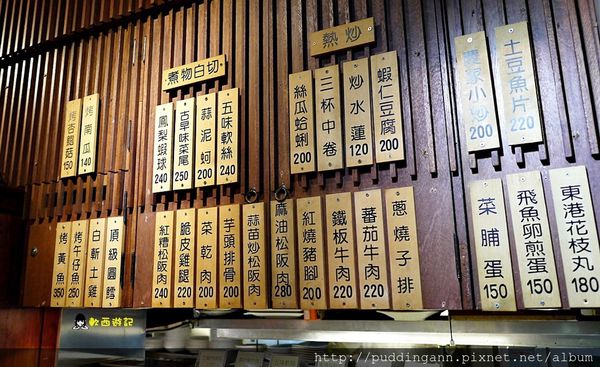 熱炒
煮物白切
烤杏鮑菇 150
烤南瓜 140
鳳梨蝦球 240
古早味菜尾 250
蒜泥蚵 200
五味軟絲 240
絲瓜蛤蜊 200
三杯中卷
炒水蓮 120
蝦仁豆腐 200
農家小炒 200
土豆魚片 220
烤黃魚 350
烤午仔魚 250
白斬土雞
頂級圓鱈
紅糟松阪肉 240
脆皮雞腿 220
菜乾肉 200
芋頭排骨 200
蒜苗炒松阪肉
麻油松阪肉 280
紅燒豬腳 200
鐵板牛肉 220
蕃茄牛肉 220
蔥燒子排 220
菜脯蛋 150
飛魚卵煎蛋 150
東港花枝丸 180
軟西遊記
http://puddingann.pixnet.net/album